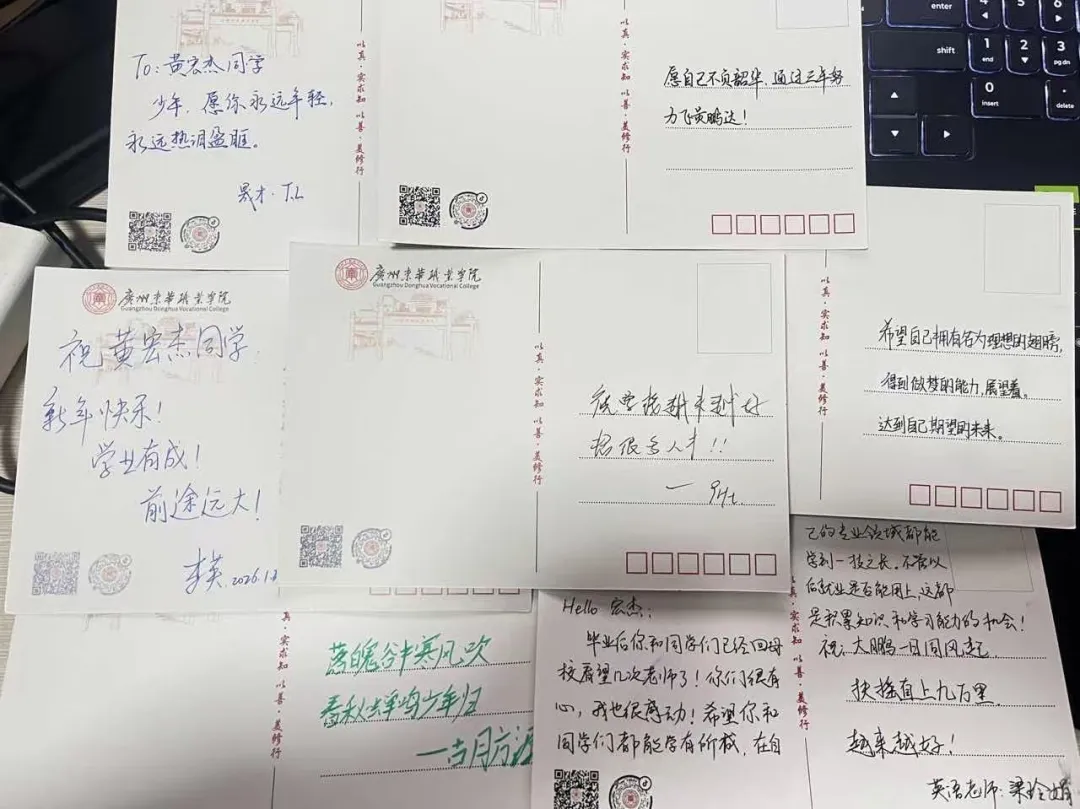 To: 黄宏杰同学
少年，愿你永远年轻，
永远热泪盈眶。
以真·实求知 以善·美修行
愿自己不负韶华，通过三年努
力飞黄腾达！
以真·实求知 以善·美修行
廣州東華職業學院
Guangzhou Donghua Vocational College
祝黄宏杰同学，
新年快乐！
学业有成！
前途远大！
李英 2026.1.2
廣州東華職業學院
Guangzhou Donghua Vocational College
以真·实求知 以善·美修行
越来越好
很多人
希望自己拥有名为理想的翅膀，
得到做梦的能力，展望着。
达到自己期望的未来。
以真·实求知 以善·美修行
落魄谷中寒风吹
春秋蝉鸣少年归
—古月方源
以真·实求知 以善·美修行
Hello 宏杰：
毕业后你和同学们已经回母
校看望几次老师了！你们很有
心，我也很感动！希望你和
同学们都能学有所成，在自
己的专业领域都能
学到一技之长。不管以
后就业是否能用上，这都
是积累知识和学习能力的机会！
祝：大鹏一日同风起，
扶摇直上九万里
越来越好！
英语老师：梁玲娟
以真·实求知 以善·美修行
enter
shift
1
end
2
3
pg dn
0
insert
delete
4
5
6